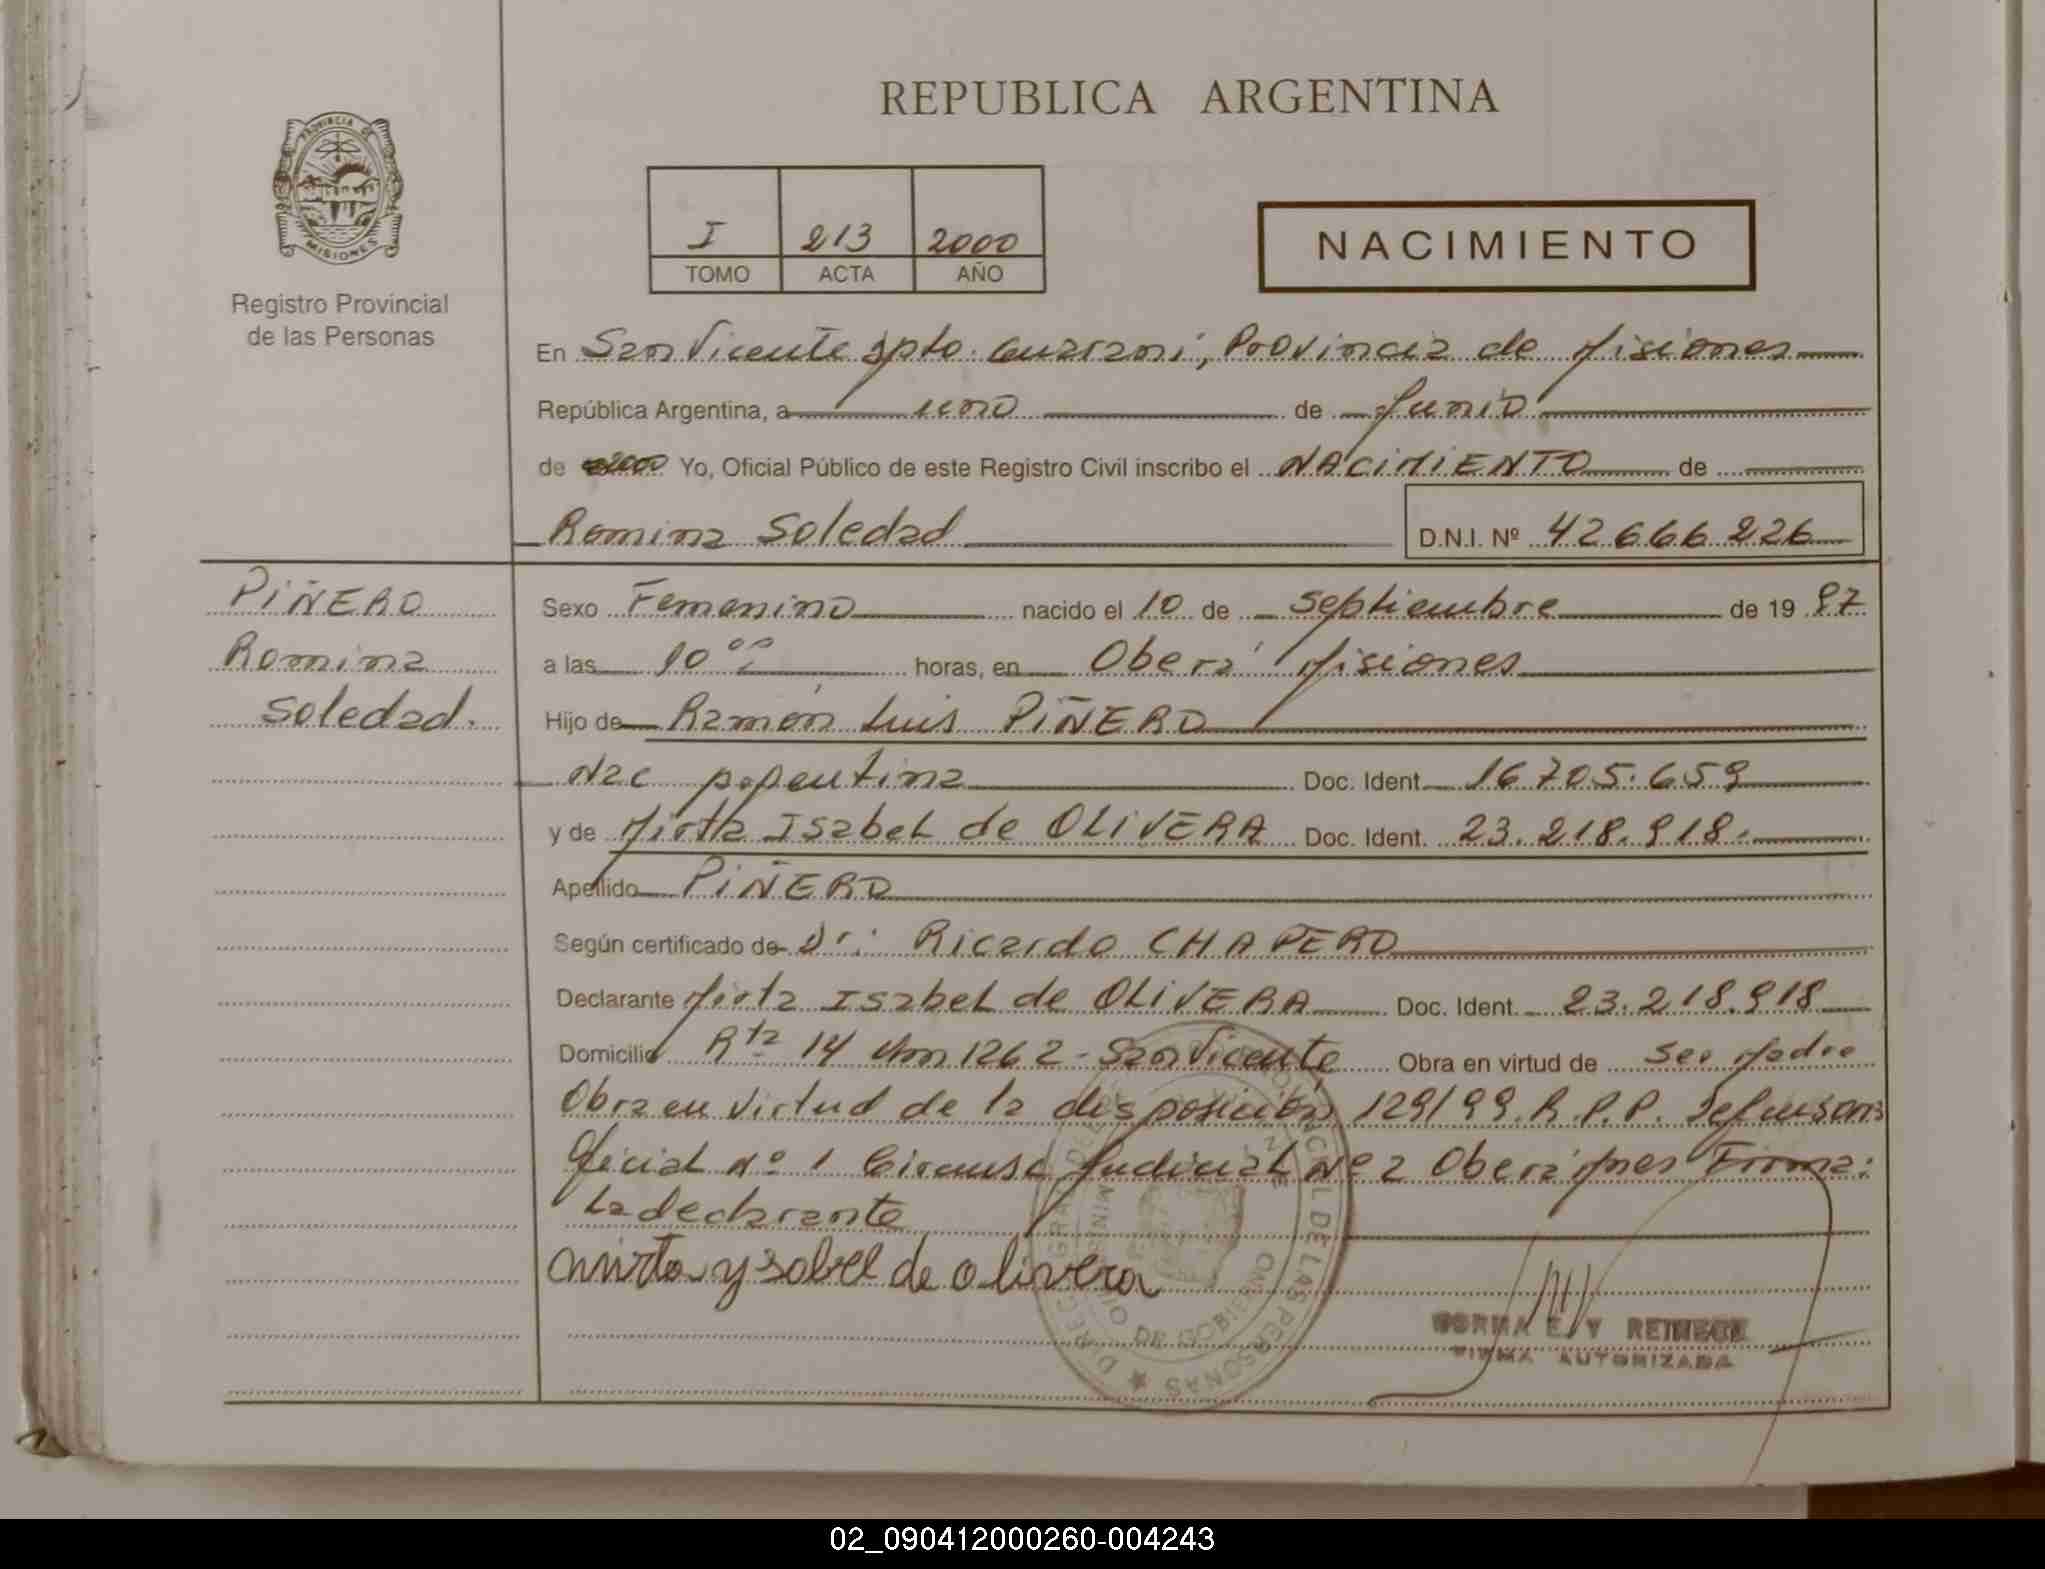 REPUBLICA ARGENTINA
PROVINCIA DE
MISIONES
Registro Provincial
de las Personas
I 213 2000
TOMO ACTA AÑO
NACIMIENTO
En San Vicente Dpto. Guaraní, Provincia de Misiones
República Argentina, a uno de Junio
de 2000 Yo, Oficial Público de este Registro Civil inscribo el NACIMIENTO de
Romina Soledad D.N.I. Nº 42666226
PIÑERO
Romina
Soledad.
Sexo Femenino nacido el 10 de Septiembre de 19 97
a las 10 00 horas, en Oberá Misiones
Hijo de Ramón Luis PIÑERO
Nac Argentina Doc. Ident. 16.705.659
y de Mirta Isabel de OLIVERA Doc. Ident. 23.218.918.
Apellido PIÑERO
Según certificado de Dr: Ricardo CHAPERO
Declarante Mirta Isabel de OLIVERA Doc. Ident. 23.218.918
Domicilio Rta 14 Km 1262 - San Vicente Obra en virtud de ser Madre
Obra en virtud de la disposición 129/99 R.P.P. Defensoría
Oficial Nº 1 Circunsc Judicial Nº 2 Oberá Mnes Firma:
La declarante
mirta ysabel de olivera
DE LAS PERSONAS
DE GOBIERNO
NORMA E. V REINECK
FIRMA AUTORIZADA
02_090412000260-004243